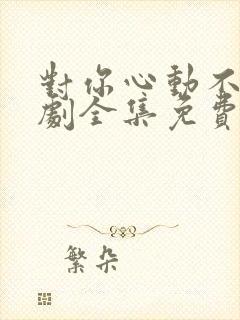 對你心動不
劇全集免費
繁朵